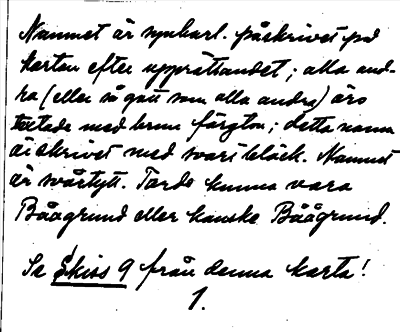 Namnet är synbarl. påskrivet på
kartan efter upprättandet; alla and-
ra (eller så gott som alla andra) äro
textade med brun färgton; detta namn
är skrivet med svart bläck. Namnet
är svårtytt. Torde kunna vara
Båågrund eller kanske Böögrund.
Se Skiss 9 från denna karta!
1.